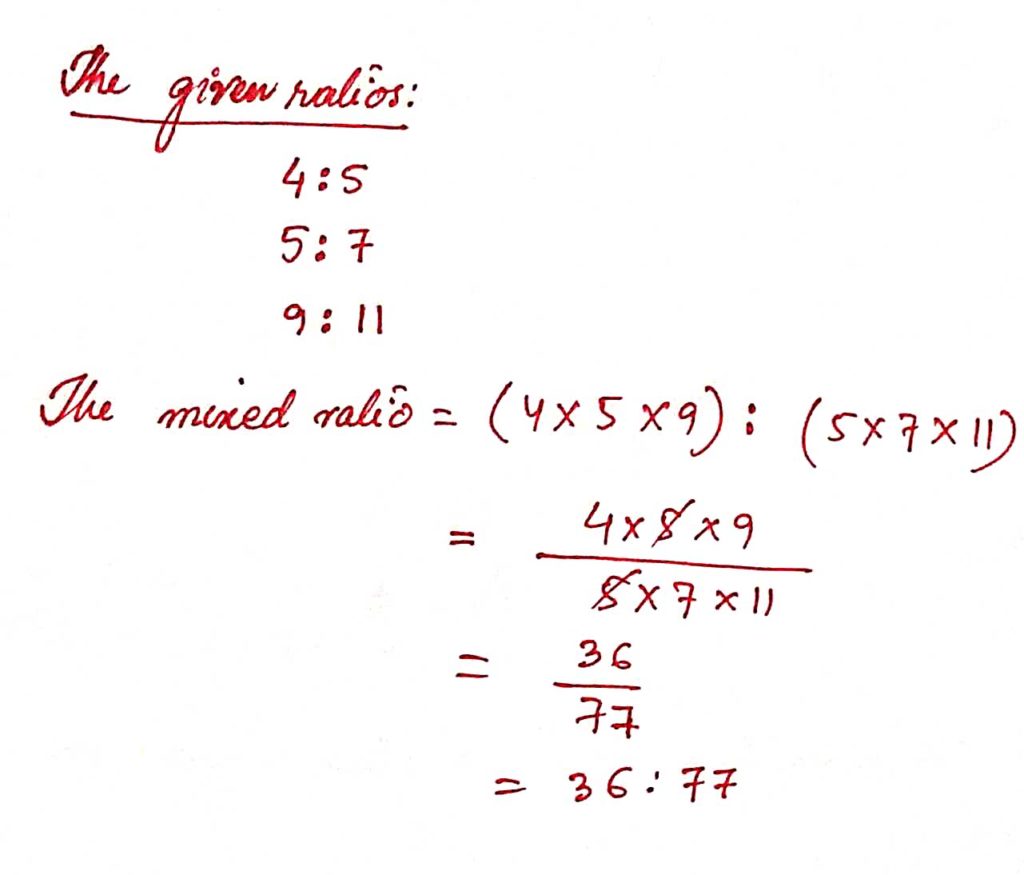 The given ratios:
4:5
5:7
9:11
The mixed ratio = (4×5×9): (5×7×11)
= 4×5×9
5×7×11
= 36
77
= 36:77